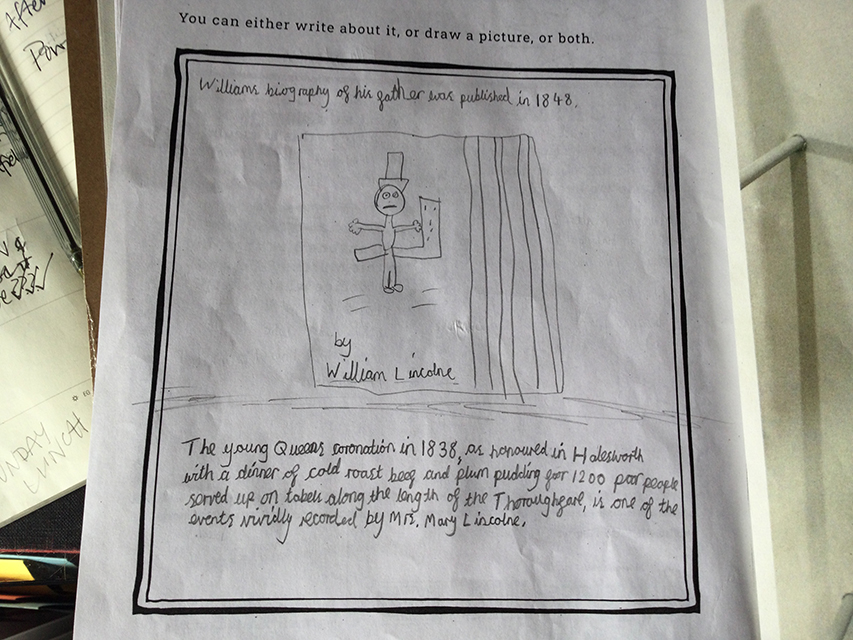 You can either write about it, or draw a picture, or both.
Williams biography of his father was published in 1848.
by
William Lincolne
The young Queens coronation in 1838, as honoured in Halesworth
with a dinner of cold roast beef and plum pudding for 1200 poor people
served up on tabels along the length of the Thoroughfare, is one of the
events vividly recorded by Mrs. Mary Lincolne.
LUNCH